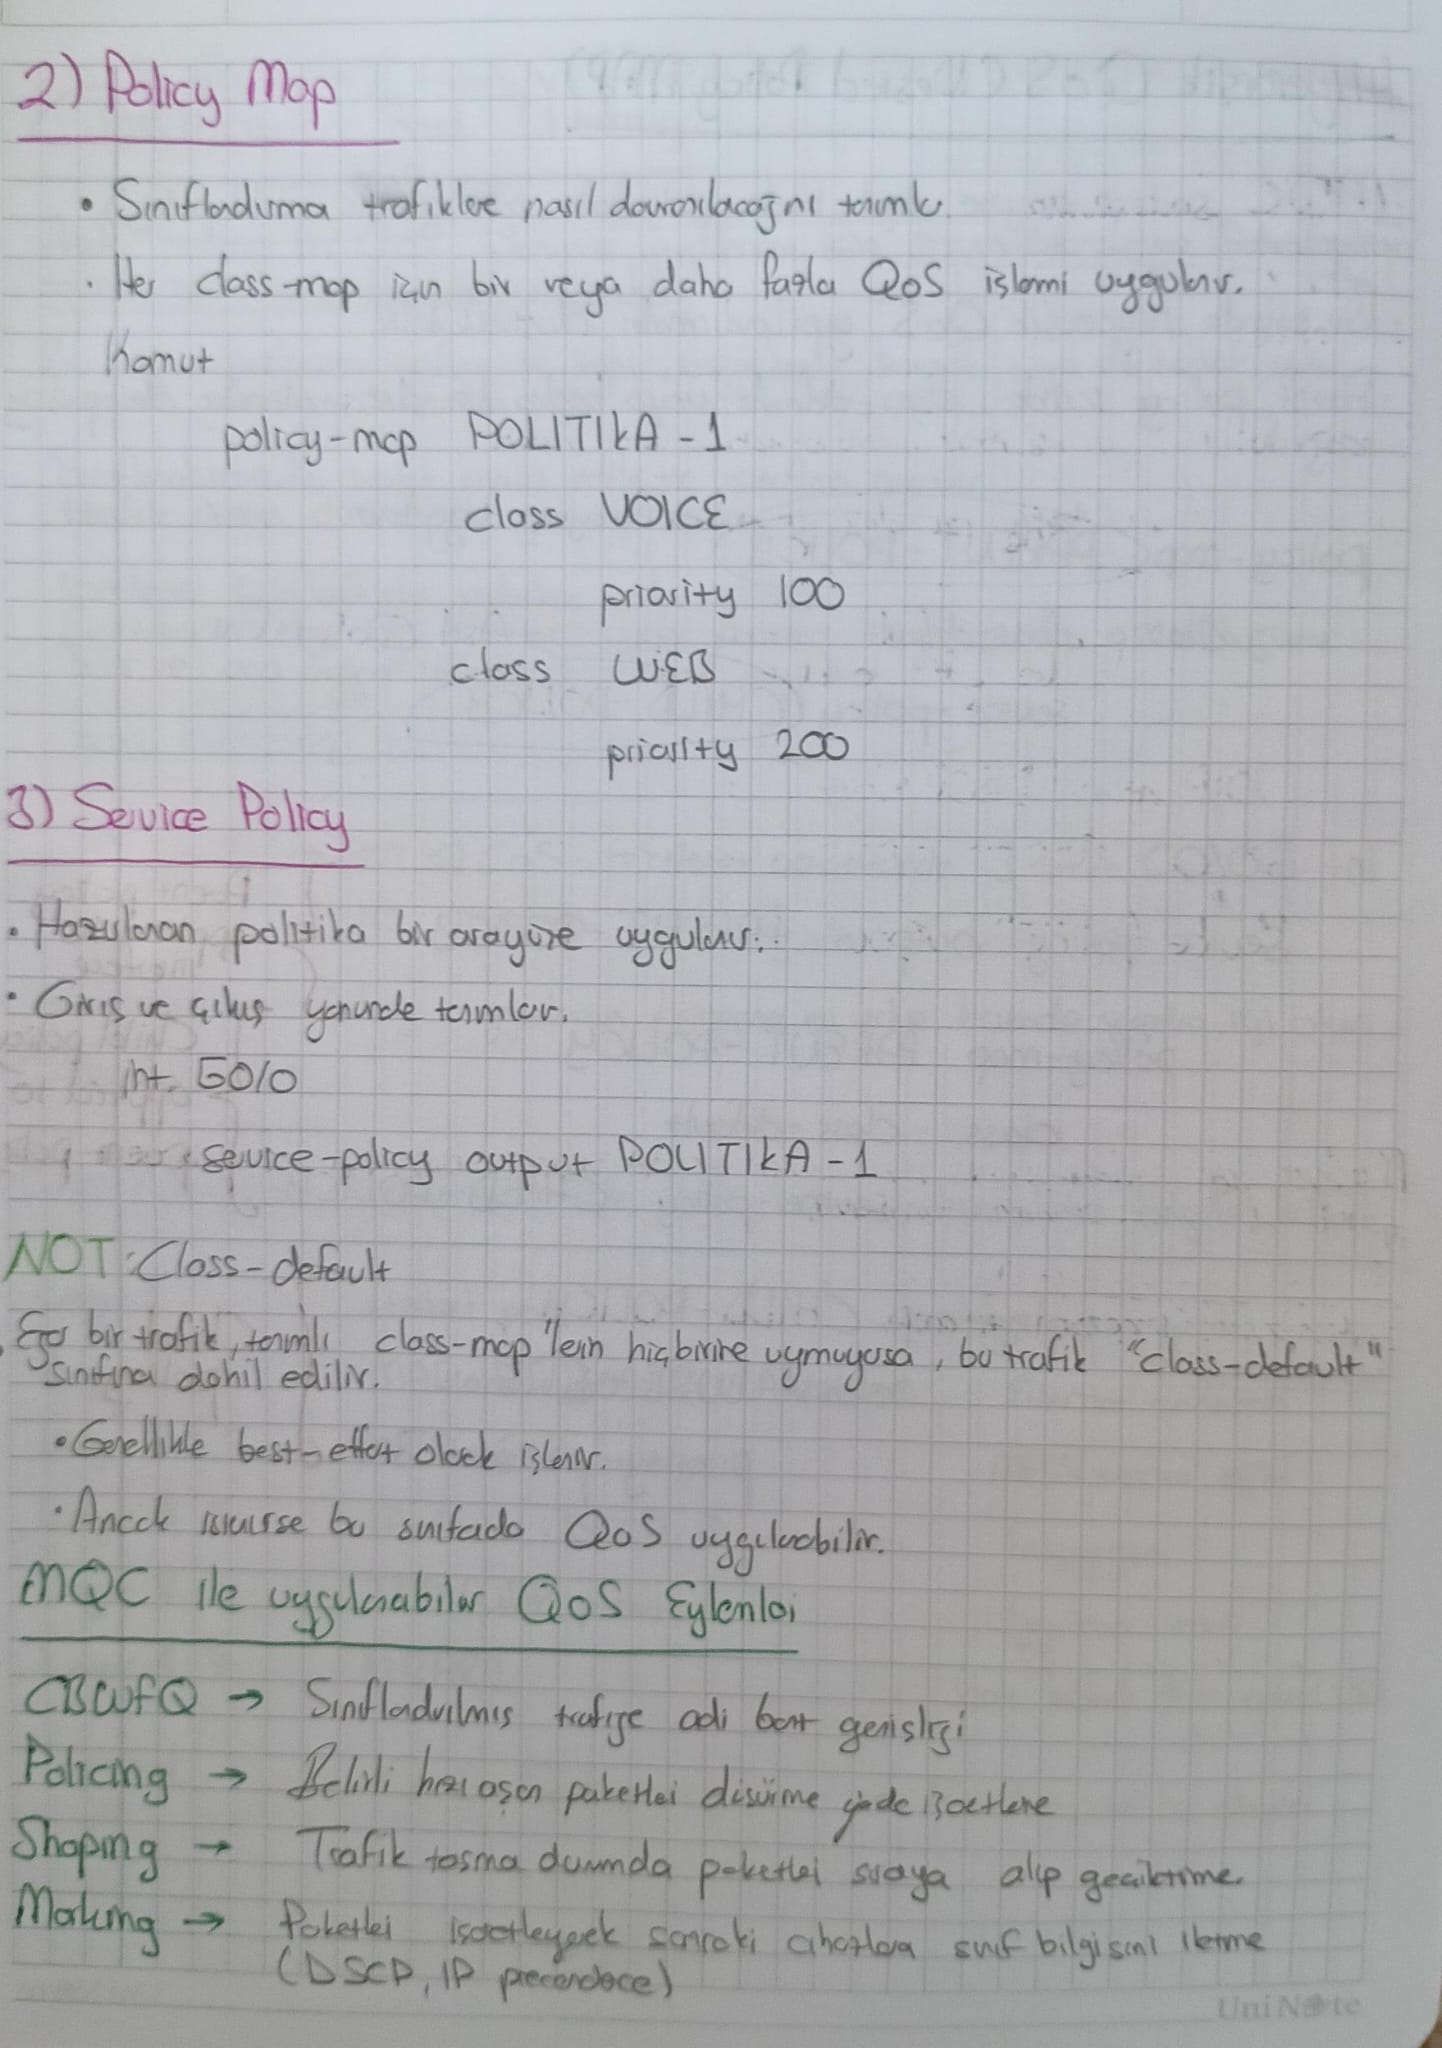 2) Policy Map
• Sınıflandırma trafiklere nasıl davranılacağını tanımlar.
• Her class-map için bir veya daha fazla QoS işlemi uygulanır.
Komut
policy-map POLITIKA-1
class VOICE
priority 100
class WEB
priority 200
3) Service Policy
• Hazırlanan politika bir arayüze uygulanır.
• Giriş ve çıkış yönünde tanımlanır.
int G0/0
service-policy output POLITIKA-1
NOT: Class-default
• Eğer bir trafik, tanımlı class-map'lerin hiçbirine uymuyorsa, bu trafik "class-default"
sınıfına dahil edilir.
• Genellikle best-effort olarak işlenir.
• Ancak istenirse bu sınıfada QoS uygulanabilir.
MQC ile uygulanabilir QoS Eylemleri
CBWFQ → Sınıflandırılmış trafiğe adi bant genişliği
Policing → Belirli hızı aşan paketleri düşürme yada işaretleme
Shaping → Trafik taşma durumda paketleri sıraya alıp geciktirme.
Marking → Paketleri işaretleyerek sonraki cihazlara sınıf bilgisini iletme
(DSCP, IP precendece)
UniNote